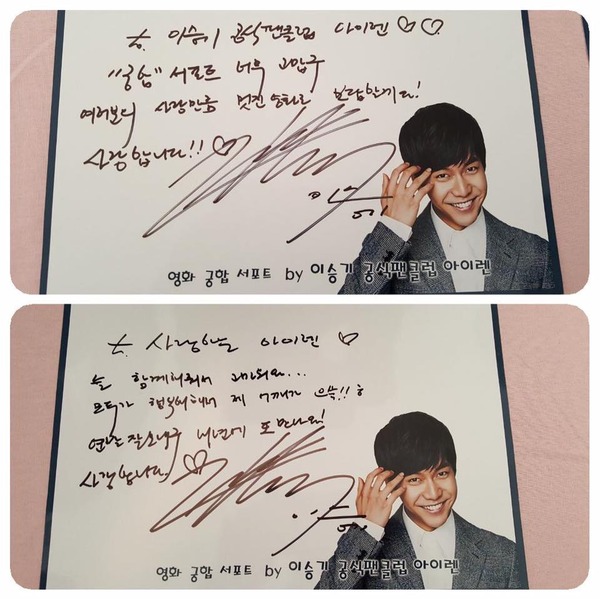 to. 이승기 공식팬클럽 아이렌♡♡
"궁합" 서포트 너무 고맙구
여러분의 사랑만큼 멋진 연기로 보답할게요!
사랑합니다!!♡
이승기
영화 궁합 서포트 by 이승기 공식팬클럽 아이렌
to. 사랑하는 아이렌♡
늘 함께해줘서 고마워요...
모두가 행복해해서 제 어깨가 으쓱!!ㅎ
연말 잘 보내구 내년에 또 만나요!
사랑합니다.♡
이승기
영화 궁합 서포트 by 이승기 공식팬클럽 아이렌